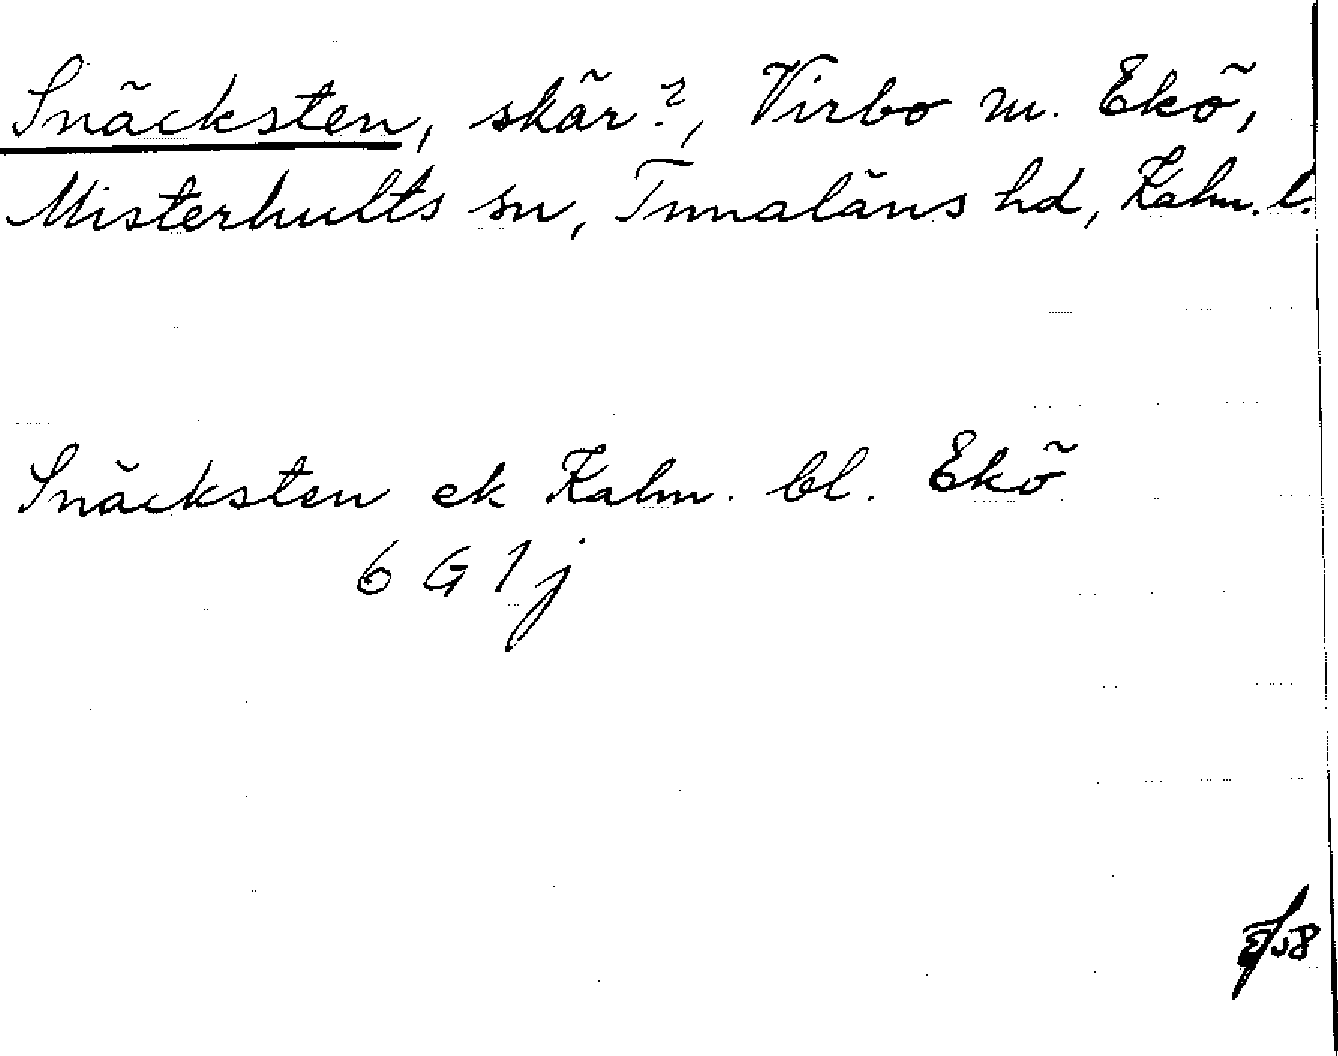 Snäcksten, skär?, Virbo m. Ekö,
Misterhults sn, Tunaläns hd, Kalm. l.
Snäcksten ek Kalm. bl. Ekö
6 G 1 j